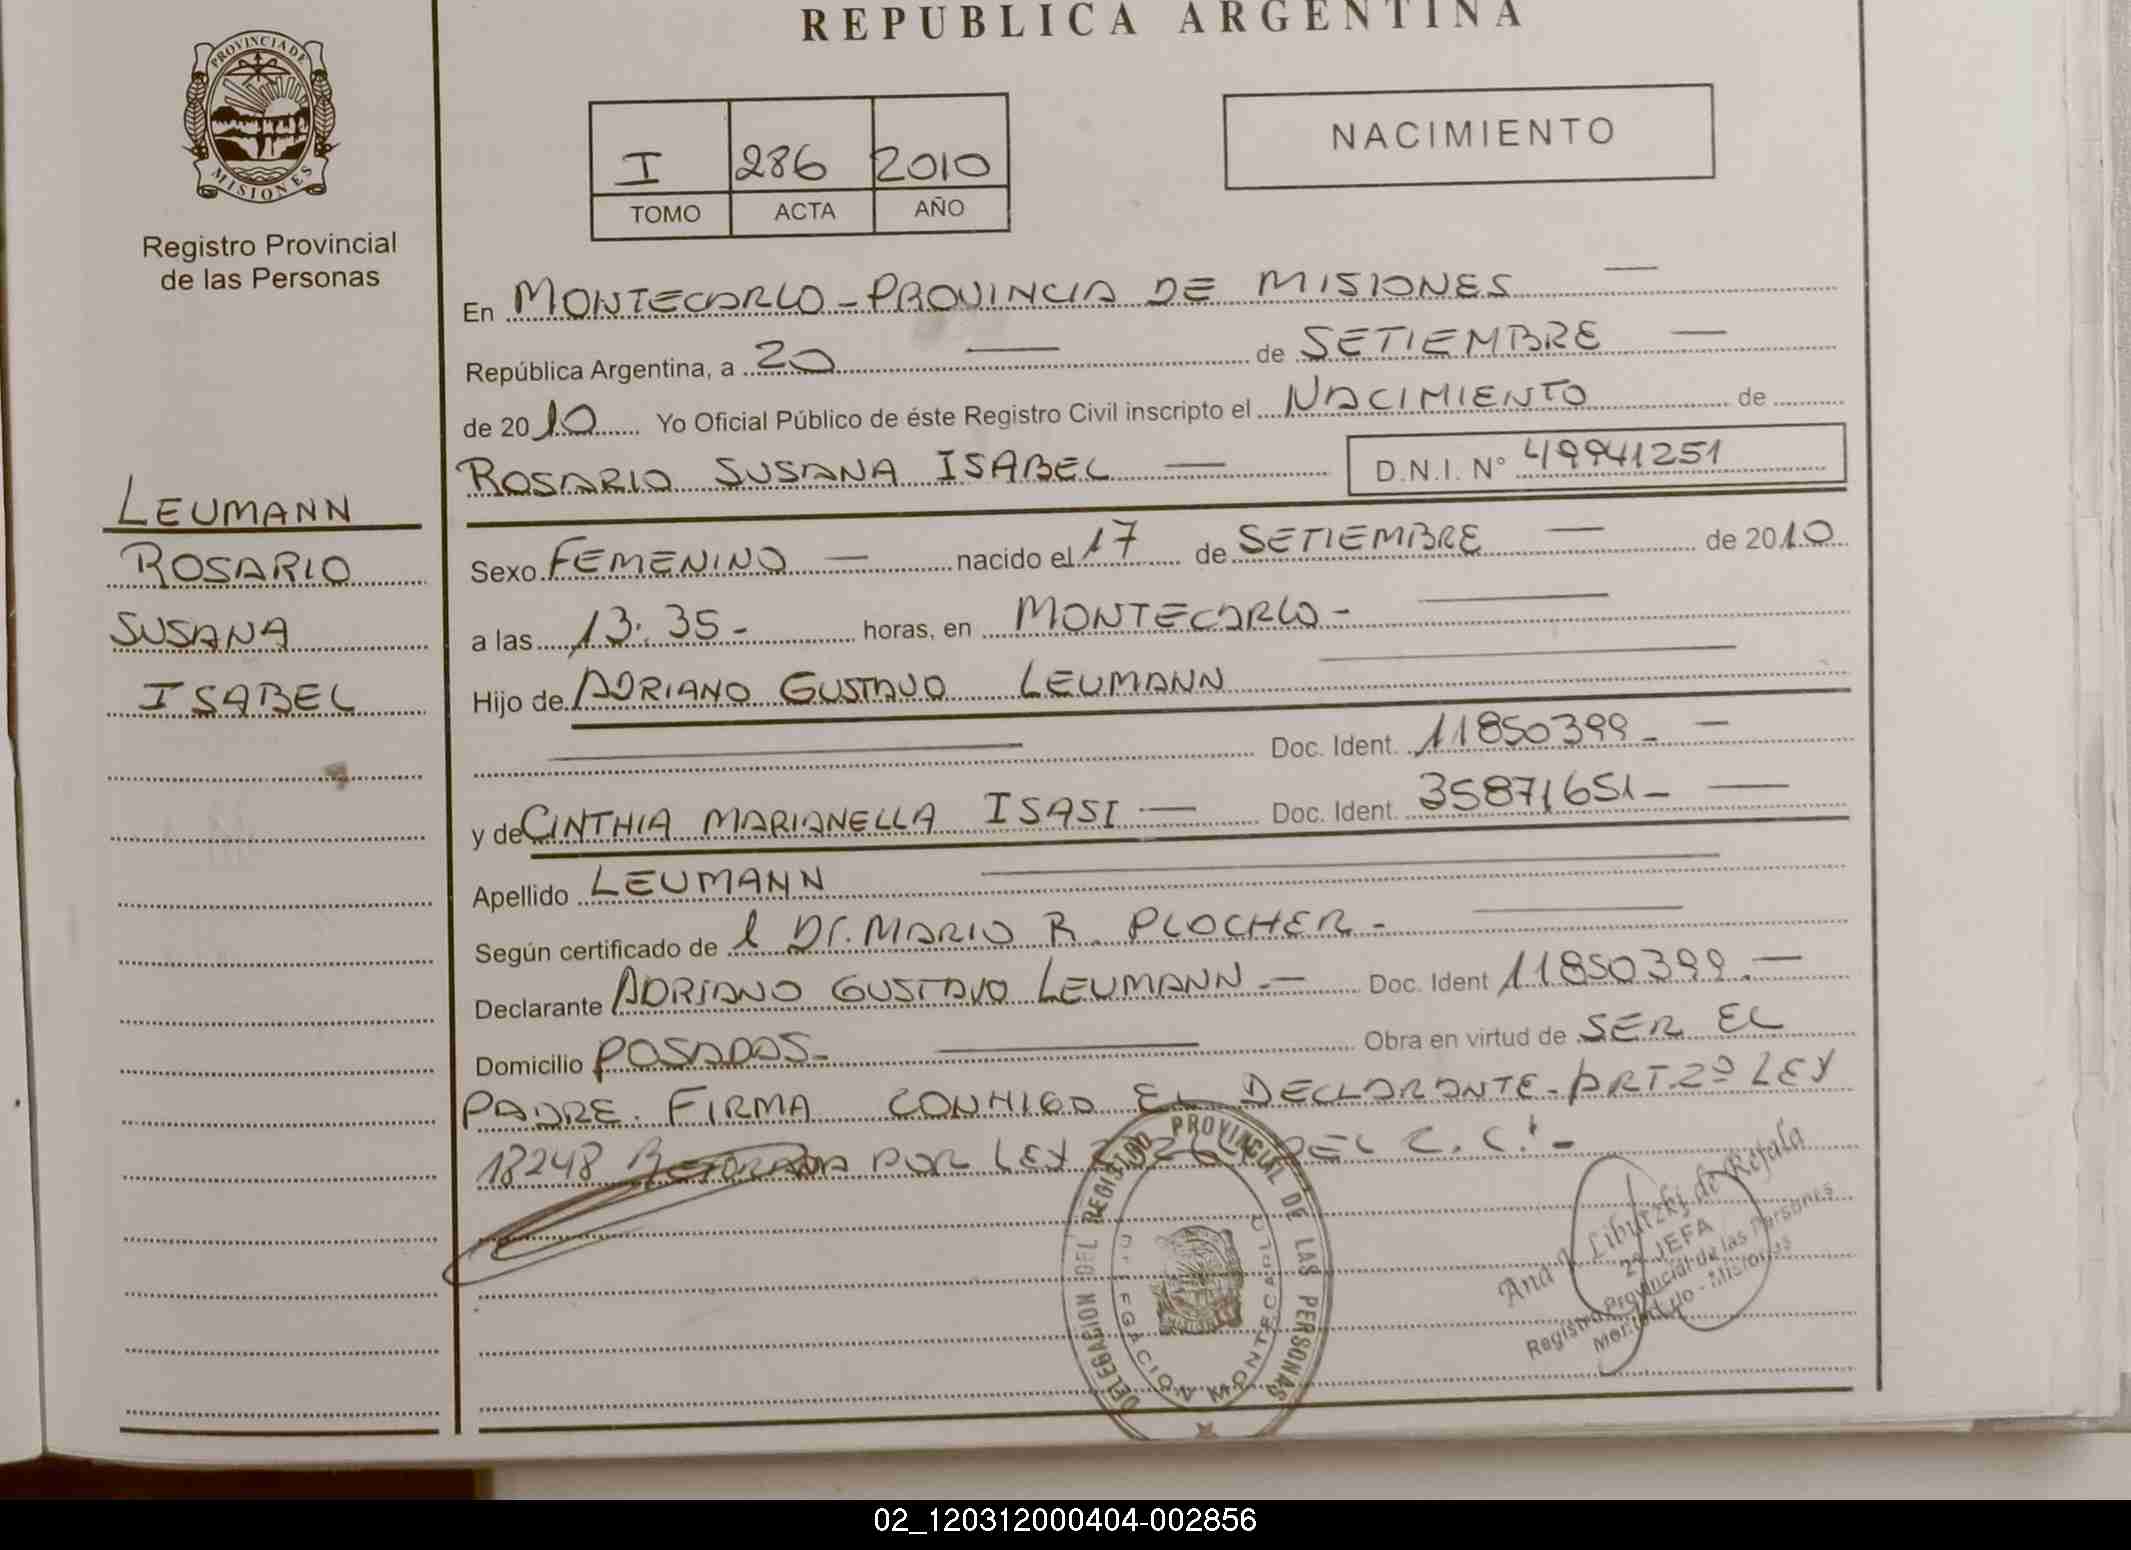 REPUBLICA ARGENTINA
PROVINCIA DE
MISIONES
Registro Provincial
de las Personas
I 286 2010
TOMO ACTA AÑO
NACIMIENTO
En MONTECARLO - PROVINCIA DE MISIONES —
República Argentina, a 20 — de SETIEMBRE —
de 2010 Yo Oficial Público de éste Registro Civil inscripto el NACIMIENTO de
ROSARIO SUSANA ISABEL — D.N.I. N° 49941251
LEUMANN
ROSARIO
SUSANA
ISABEL
Sexo FEMENINO — nacido el 17 de SETIEMBRE — de 2010
a las 13:35- horas, en MONTECARLO - —
Hijo de ADRIANO GUSTAVO LEUMANN —
— Doc. Ident. 11850399 - —
y de CINTHIA MARIANELLA ISASI — Doc. Ident. 35871651 - —
Apellido LEUMANN —
Según certificado de l Dr. MARIO R. PLOCHER - —
Declarante ADRIANO GUSTAVO LEUMANN. — Doc. Ident 11850399. —
Domicilio POSADAS - — Obra en virtud de SER EL
PADRE. FIRMA CONMIGO EL DECLARANTE - ART. 2º LEY
18248 POR LEY DEL C. C. -
DELEGACION DEL REGISTRO PROVINCIAL DE LAS PERSONAS
DELEGACION MONTECARLO
Ana Libutzki de Rejala
2º JEFA
Registro Provincial de las Personas
Montecarlo - Misiones
02_120312000404-002856